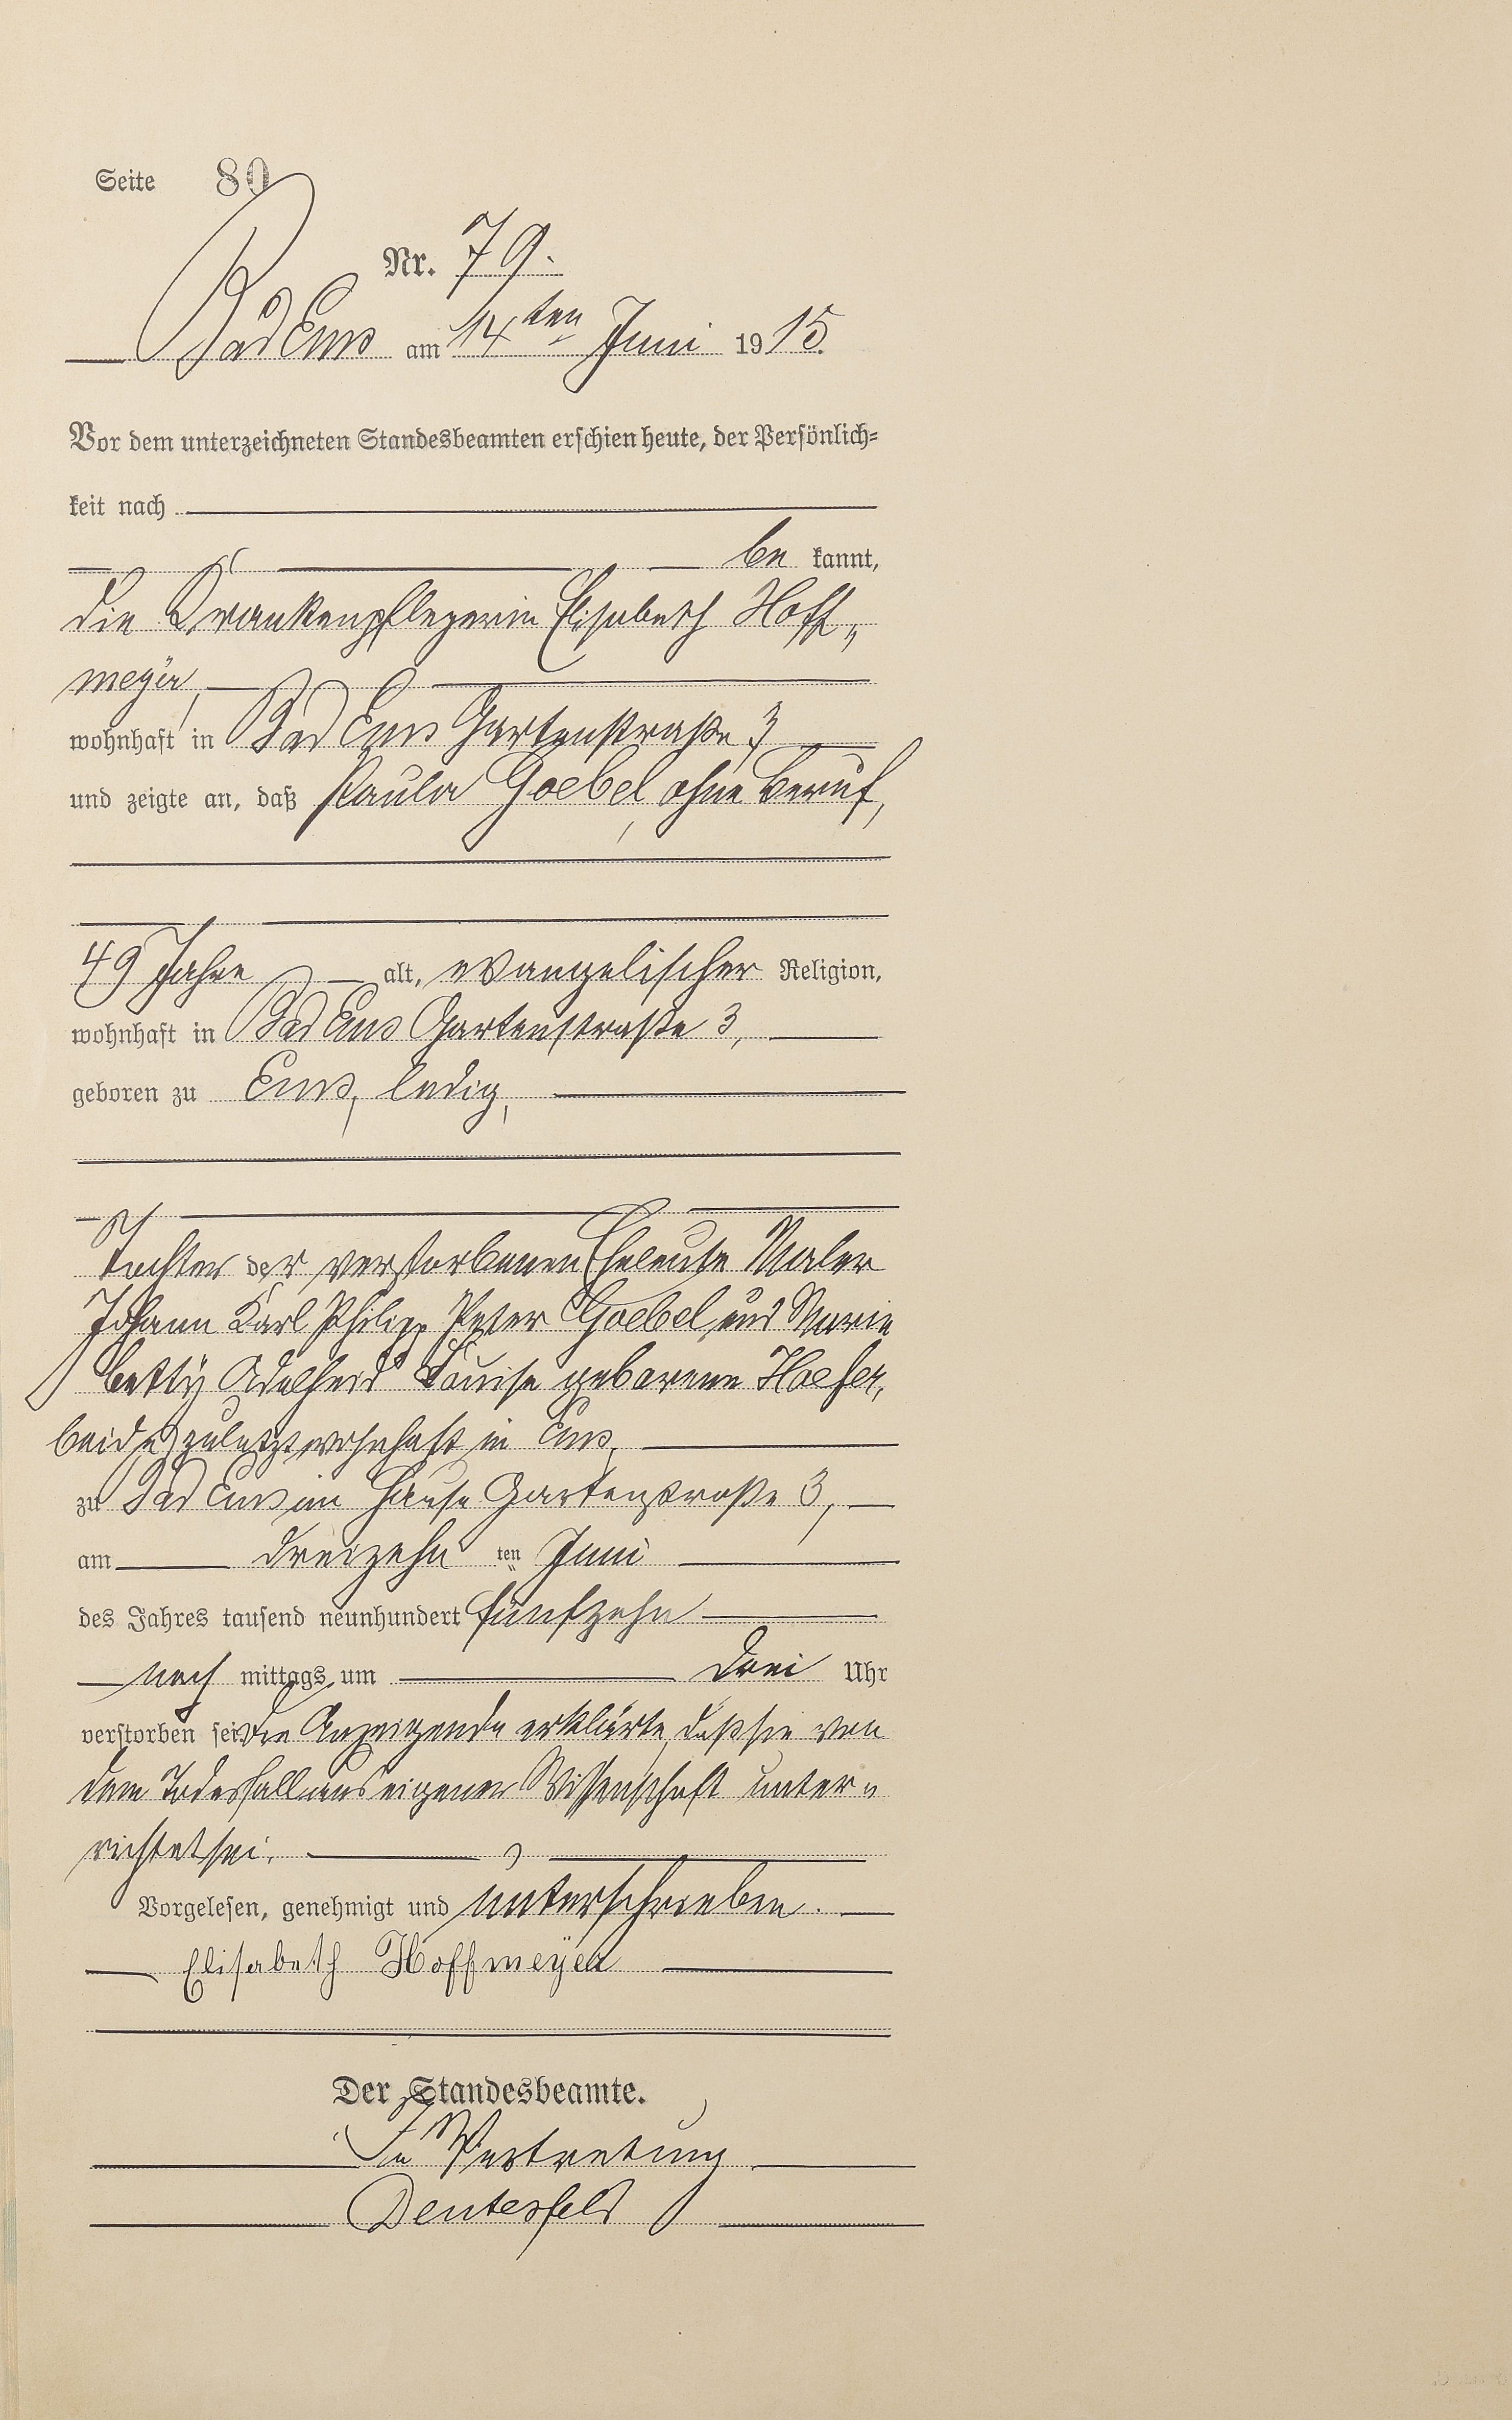 Seite 80
Nr. 79.
Bad Ems am 14ten Juni 1915.
Vor dem unterzeichneten Standesbeamten erschien heute, der Persönlich=
keit nach
be kannt,
die Krankenpflegerin Elisabeth Hoff„
meyer,
wohnhaft in Bad Ems Gartenstraße 3
und zeigte an, daß Paula Goebel, ohne Beruf,
49 Jahre alt, evangelischer Religion,
wohnhaft in Bad Ems Gartenstraße 3,
geboren zu Ems, ledig,
Tochter der verstorbenen Eheleute Maler
Johann Karl Philipp Peter Goebel und Marie
Betty Adelheid Louise geborene Hoefer,
beide zuletzt wohnhaft in Ems,
zu Bad Ems im Hause Gartenstraße 3,
am dreizehn ten Juni
des Jahres tausend neunhundert fünfzehn
nach mittags um drei Uhr
verstorben sei. Die Anzeigende erklärte, daß sie von
dem Todesfall aus eigener Wissenschaft unter„
richtet sei.
Vorgelesen, genehmigt und unterschrieben.
Elisabeth Hoffmeyer
Der Standesbeamte.
In Vertretung